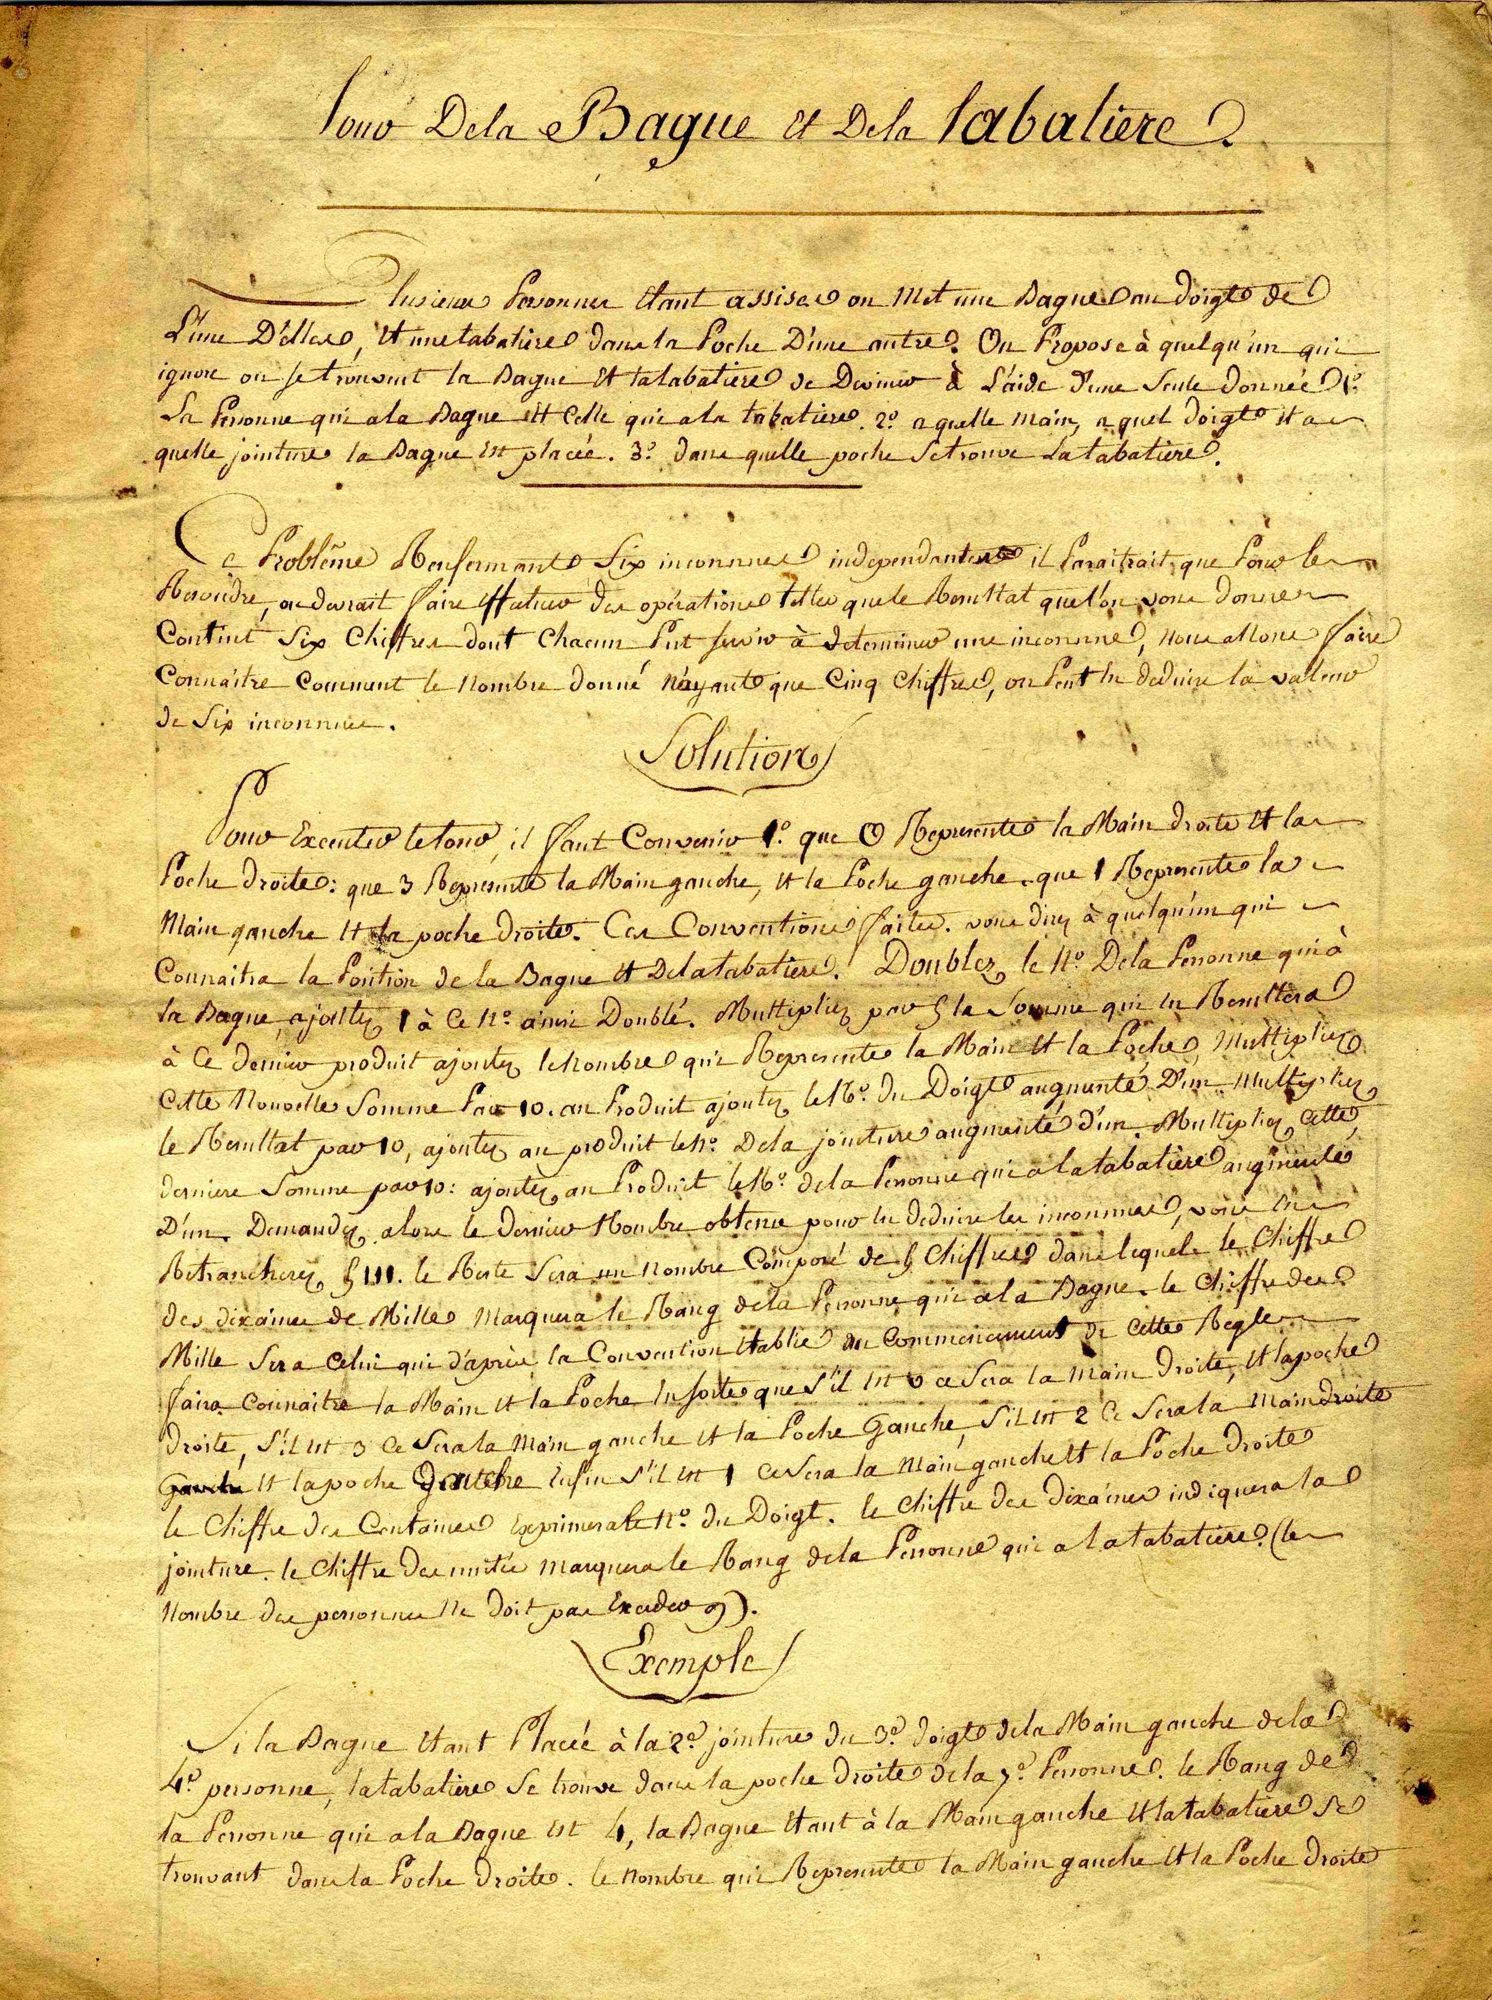 Tour De la Bague et De la tabatiere.
Plusieurs Personnes étant assises on Met une Bague au doigt de
L'une D'elles, et une tabatiere dans la Poche D'une autre. On Propose à quelqu'un qui
ignore ou se trouvent la Bague et la tabatiere de Deviner à L'aide d'une seule donnée 1º
La Personne qui a la Bague et celle qui a la tabatiere. 2º a quelle main, a quel doigt et a
quelle jointure la Bague est placée. 3º dans quelle poche se trouve La tabatiere.
Ce Problême Renfermant Six inconnues independantes il Paraitrait que Pour le
Resoudre, on devrait faire effectuer des opérations telles que le Resultat que l'on vous donne
Contint Six Chiffres dont Chacun Put servir à determiner une inconnue, nous allons faire
Connaitre Comment le nombre donné n'ayant que Cinq Chiffres, on Peut en deduire la valeur
de Six inconnues.
Solution
Pour Executer le tour, il faut Convenir 1º. que 0 Represente la Main droite et la
Poche droite: que 3 Represente la Main gauche, et la Poche gauche. que 1 Represente la
Main gauche et la poche droite. Ces Conventions faites. vous direz à quelqu'un qui
Connaitra la Position de la Bague et De la tabatiere. Doublez le Nº. De la Personne qui à
la Bague, ajoutez 1 à Ce Nº. ainsi Doublé. Multipliez par 5 la Somme qui en Resultera
à Ce dernier produit ajoutez le nombre qui Represente la Main et la Poche, Multipliez
Cette Nouvelle Somme Par 10. au Produit ajoutez le Nº. du Doigt augmenté D'un. Multipliez
le Resultat par 10, ajoutez au produit le nº. De la jointure augmenté d'un. Multipliez Cette
derniere Somme par 10: ajoutez au Produit le Nº. de la Personne qui a la tabatiere augmenté
D'un. Demandez alors le dernier Nombre obtenu pour en deduire les inconnues, vous en
Retrancherez 5111. le Reste Sera un nombre Composé de 5 Chiffres dans lequel le Chiffre
des dixaines de Mille Marquera le Rang de la Personne qui a la Bague. le Chiffre des
Mille Sera Celui qui d'après la Convention établie au Commencement de Cette Regle
faira Connaitre la Main et la Poche En sorte que S'il est 0 ce Sera la Main Droite, et la poche
droite, S'il est 3 Ce Sera la Main gauche et la Poche Gauche, S'il est 2 Ce Sera la Main droite
et la poche Gauche Enfin S'il est 1 Ce Sera la Main gauche et la Poche Droite
le Chiffre des Centaines Exprimera le nº. du Doigt. le Chiffre des dixaines indiquera la
jointure. le Chiffre Des unités Marquera le Rang de la Personne qui a la tabatiere. (le
Nombre des personnes Ne Doit pas Exceder 9).
Exemple
Si la Bague étant Placée à la 2e jointure du 3e doigt de la Main gauche de la
4e personne, la tabatiere Se trouve dans la poche droite de la 7e Personne. le Rang de
la Personne qui a la Bague est 4, la Bague étant à la Main gauche et la tabatiere se
trouvant dans la Poche droite. le nombre qui Represente la Main gauche et la Poche droite